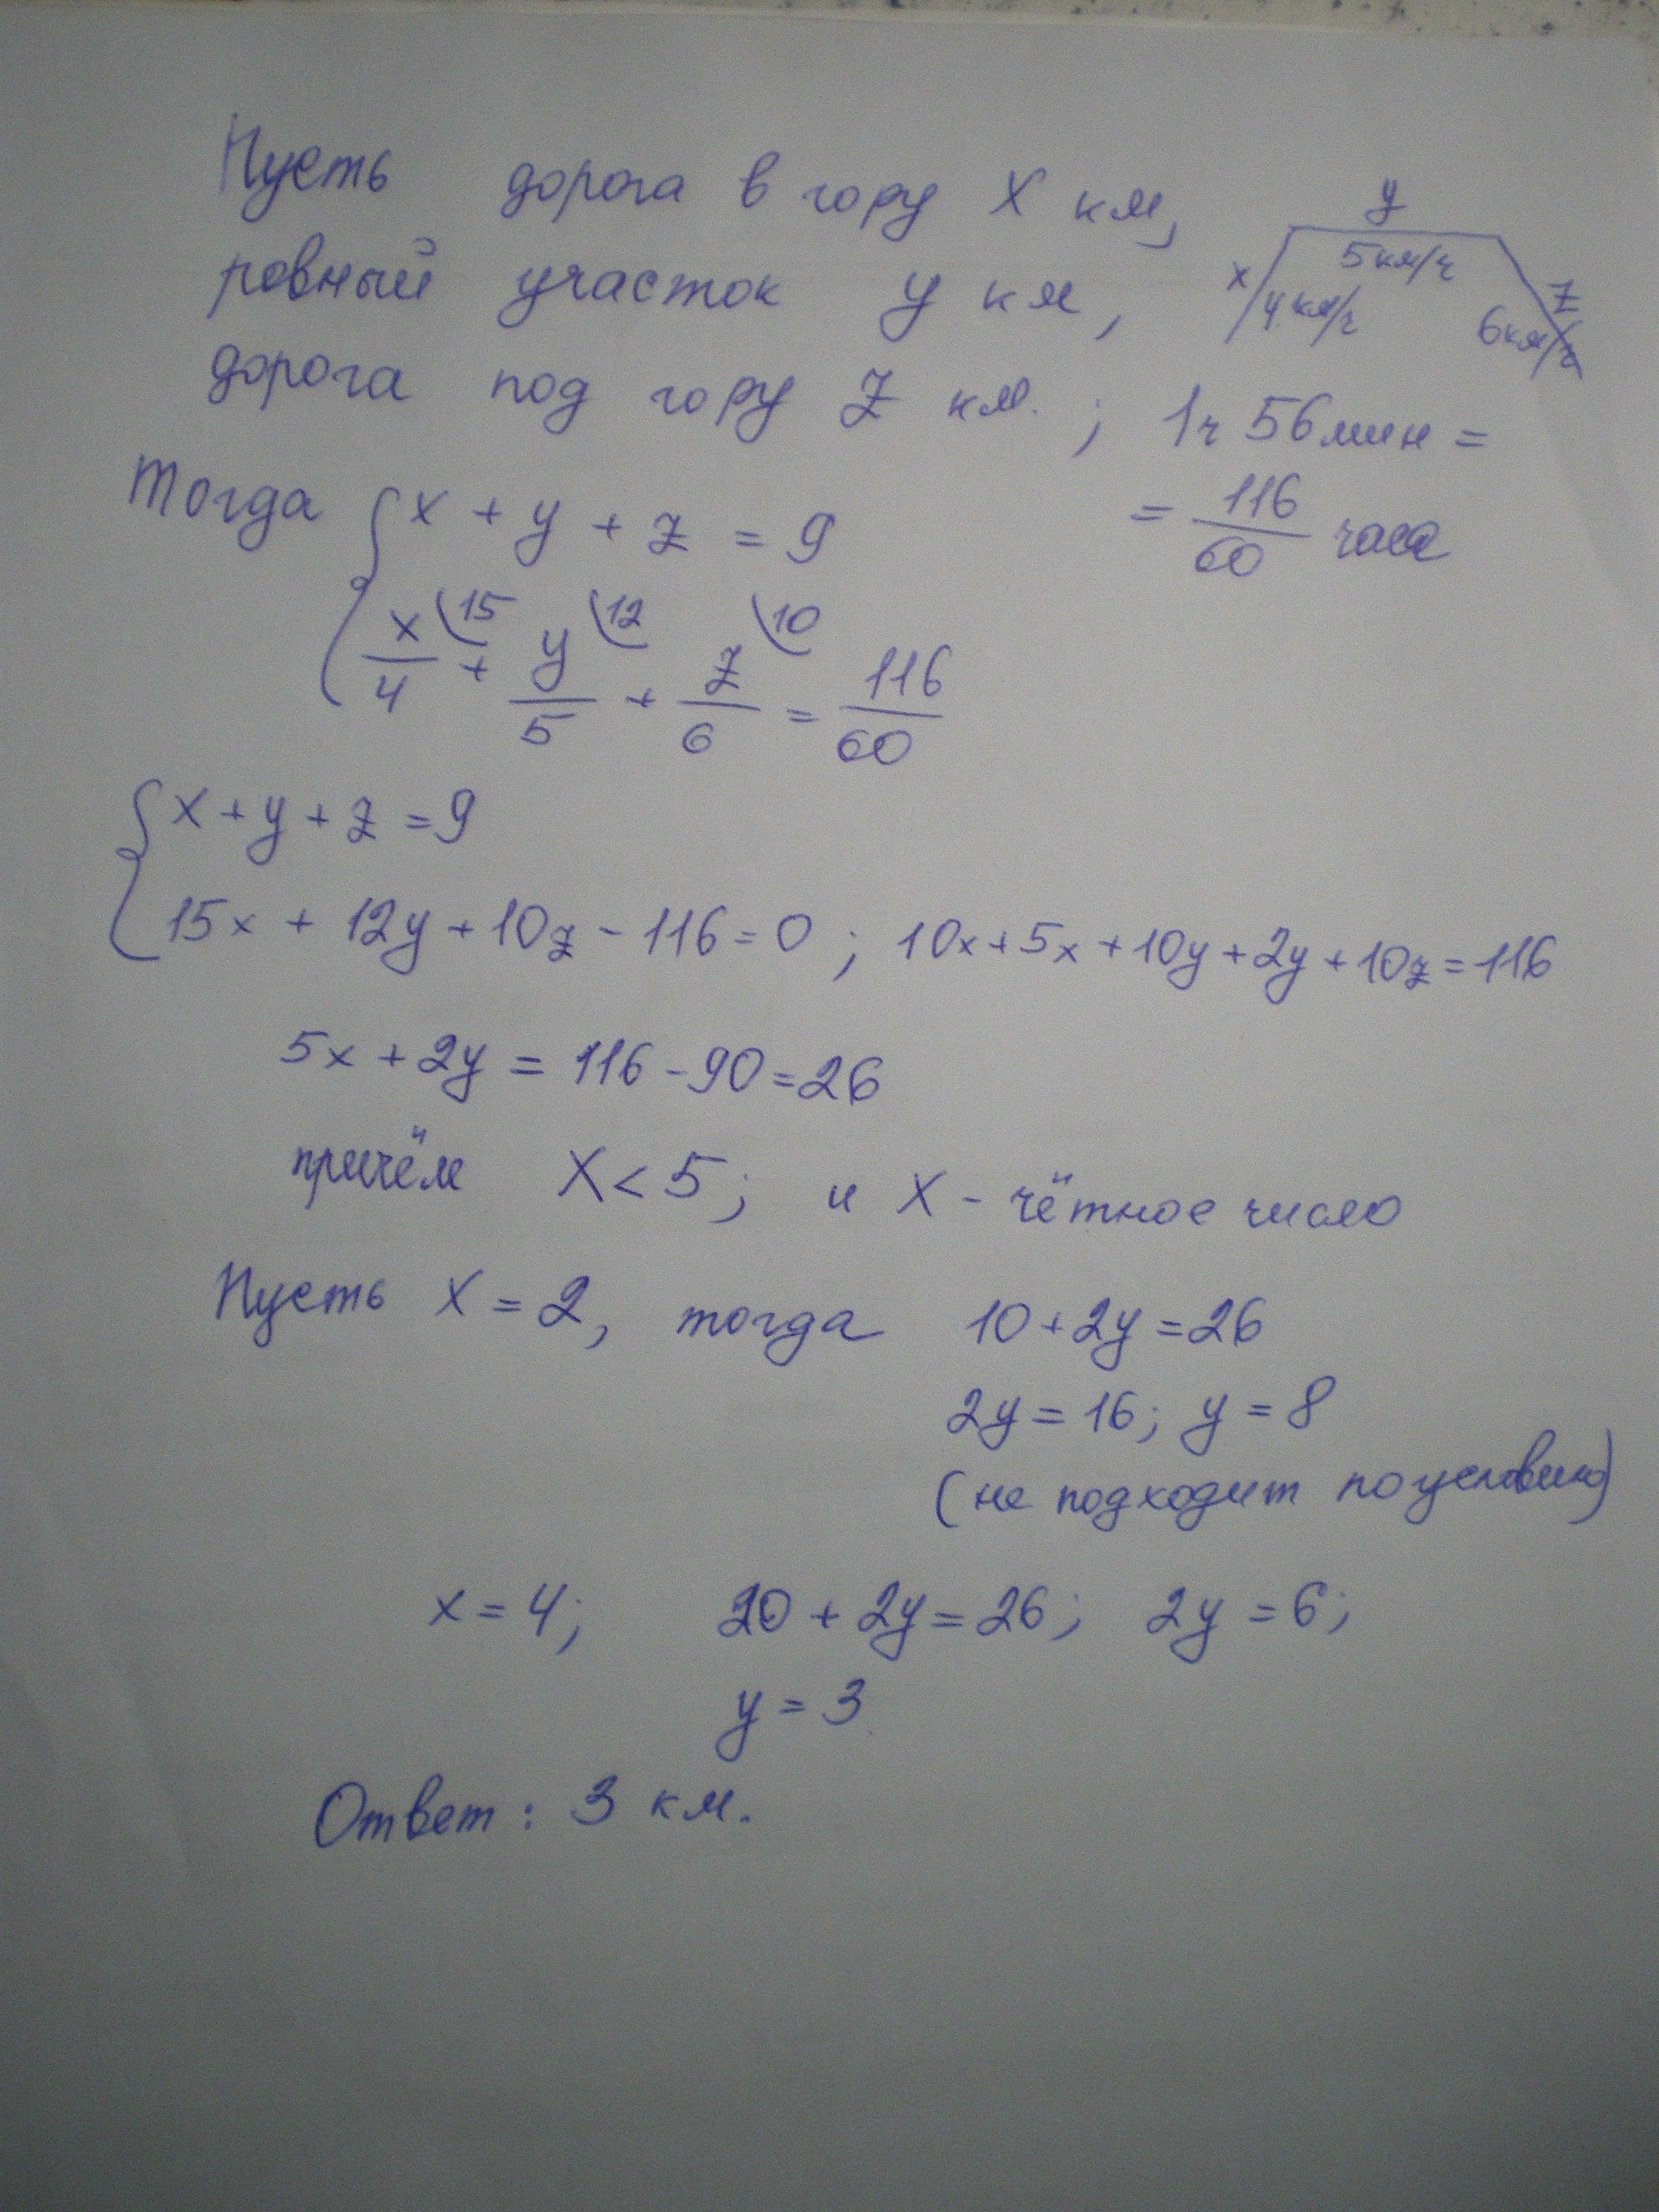 Пусть дорога в гору X км,
ровный участок y км,
дорога под гору z км. ;
y
x 5км/ч z
4 км/ч 6км/ч
1ч 56мин =
= 116/60 часа
Тогда { x + y + z = 9
x/4 \15 + y/5 \12 + z/6 \10 = 116/60
{ x + y + z = 9
15x + 12y + 10z - 116 = 0 ; 10x + 5x + 10y + 2y + 10z = 116
5x + 2y = 116 - 90 = 26
причём X < 5; и X - чётное число
Пусть X = 2, тогда 10 + 2y = 26
2y = 16; y = 8
(не подходит по условию)
x = 4; 20 + 2y = 26; 2y = 6;
y = 3
Ответ: 3 км.